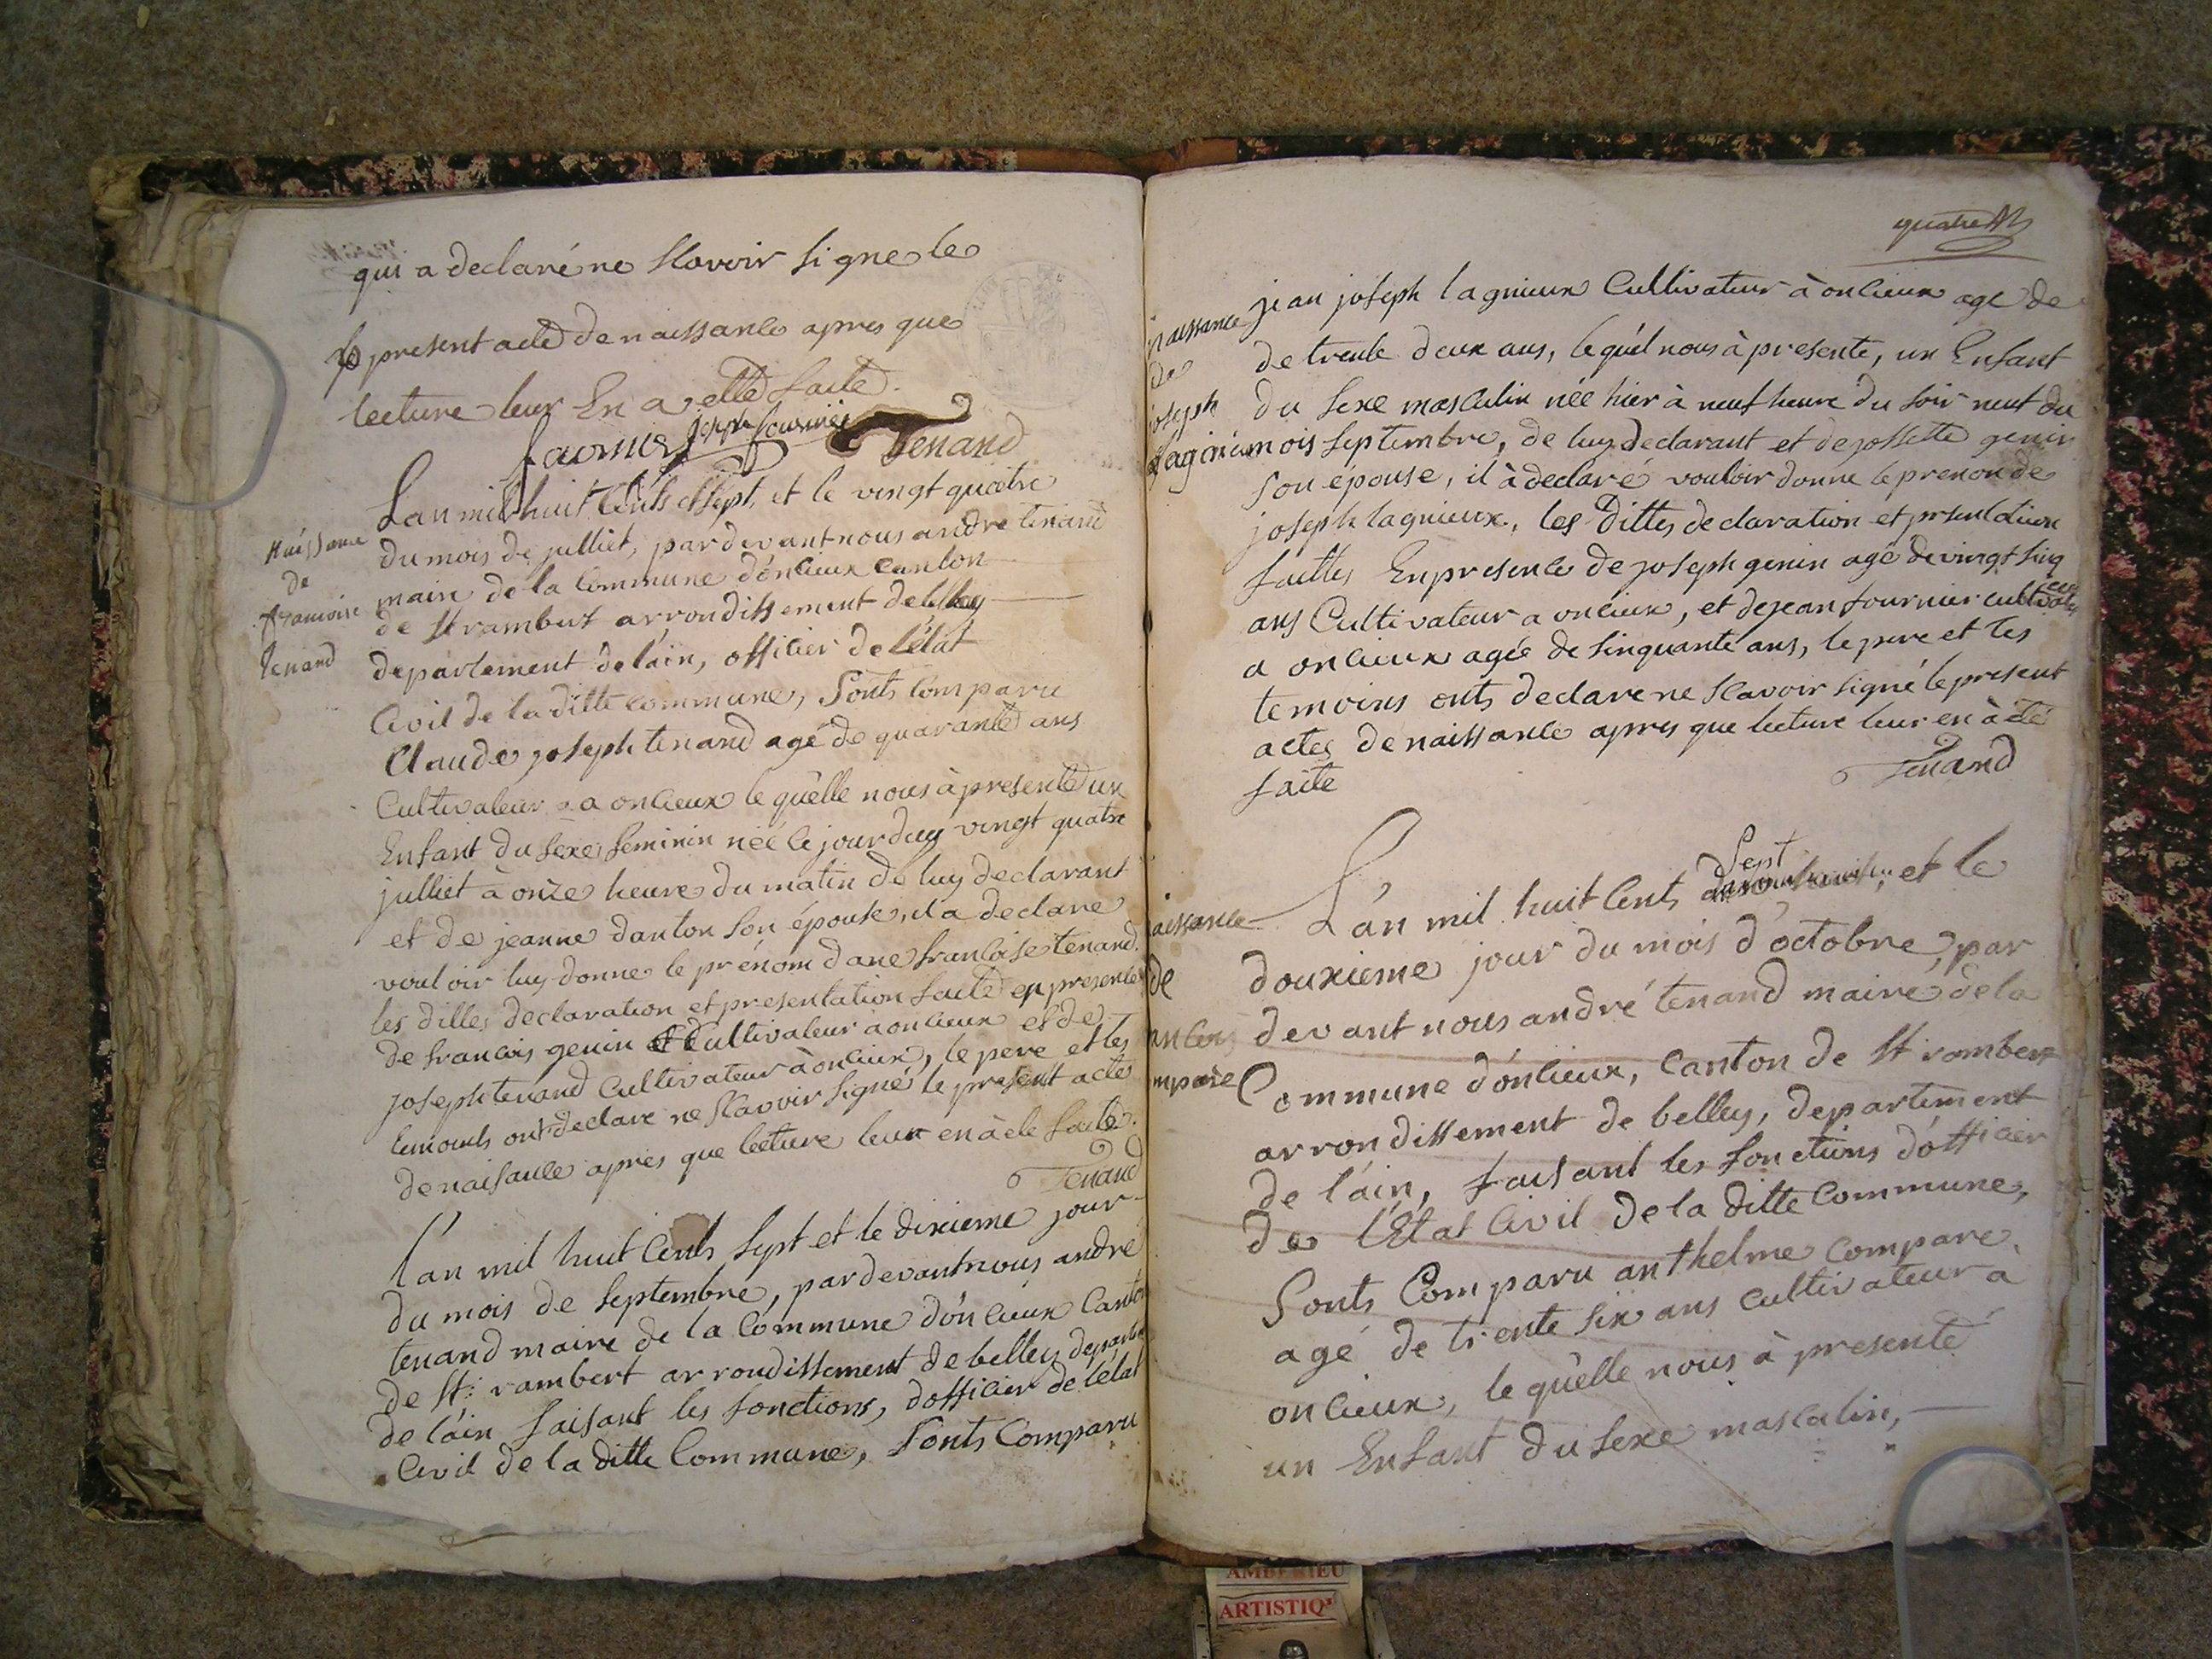 qui a declaré ne scavoir signe le
present acte de naissance apres que
lecture leur En a etté faite.
fournier joseph fournier Tenand
Naissance
de
francoise
tenand
L'an mil huit Cents et sept, et le vingt quatre
du mois de julliet, par devant nous andre tenand
maire de la Commune d'onlieux canton
de St rambert arrondissement de belley
departement de l'ain, officier de l'état
Civil de la ditte commune, Sonts Comparu
Claude joseph tenand agé de quarante ans
Cultivateur a onlieux le quèlle nous à presente un
Enfant du sexe feminin néé le jourduy vingt quatre
julliet à onze heure du matin de luy declarant
et de jeanne danton son épouse, il a declare
vouloir luy donne le prénom dane francoise tenand.
les dittes declaration et presentation faite en presence
de francois genin Cultivateur a onlieux et de
joseph tenand Cultivateur à onlieux, le pere et les
temoins ont declare ne scavoir signé le present acte
de naisance apres que lecture leur en à ete faite.
Tenand
l'an mil huit Cents sept et le dixieme jour
du mois de septembre, par devant nous andré
tenand maire de la Commune d'onlieux Canton
de St: rambert arrondissement de belley depart
de l'ain faisant les fonctions, dofficier de l'état
Civil de la ditte Commune, Sonts Comparu
quatre
naissance
de
joseph
lagnieux
jean joseph lagnieux Cultivateur à onlieux age de
de trente deux ans, lequél nous à presente, un Enfant
du sexe masculin néé hier à neuf heure du soir neuf du
mois septembre, de luy declarant et de jossette genin
son épouse, il à declaré vouloir donne le prenon de
joseph lagnieux, les Dittes declaration et prsentation
faittes En presence de joseph genin agé de vingt sinq
ans Cultivateur a onlieux, et de jean fournier cultivateur
a onlieux agée de sinquante ans, le pere et les
temoins onts declare ne scavoir signé le present
actes de naissance apres que lecture leur en à été
faite
Tenand
aissance
de
mpare
Sept
L'an mil huit Cents et le
douxieme jour du mois d'octobre, par
devant nous andré tenand maire de la
Commune d'onlieux, Canton de St rambert
arrondissement de belley, departement
de l'ain, faisant les fonctions d'officier
de l'Etat Civil de la ditte Commune,
Sonts Comparu anthelme Compare
agé de trente six ans cultivateur a
onlieux, le quèlle nous à presenté
un Enfant du sexe masculin,
AMBERIEU
ARTISTIQ